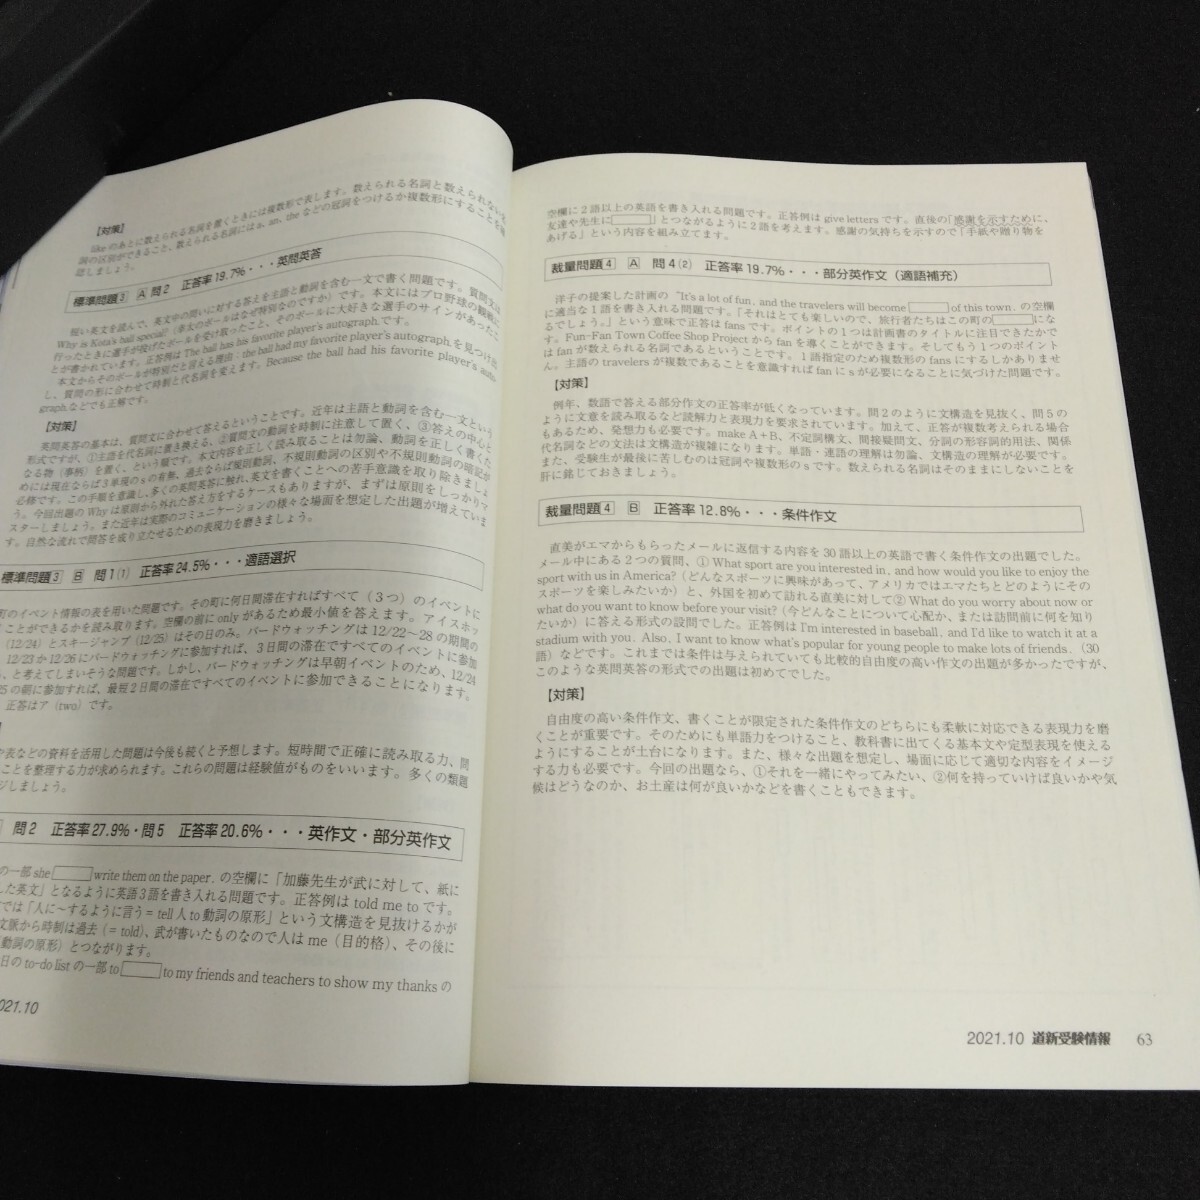 【対策】
likeのあとに数えられる名詞を置くときには複数形で表します。数えられる名詞と数えられない名
詞の区別ができること、数えられる名詞にはa, an, theなどの冠詞をつけるか複数形にすることを確
認しましょう。
標準問題3 A 問2 正答率19.7%・・・英問英答
短い英文を読んで、英文中の問いに対する答えを主語と動詞を含む一文で書く問題です。質問文は
Why is Kota's ball special?（幸太のボールはなぜ特別なのですか）です。本文にはプロ野球の観戦に
行ったときに選手が投げたボールを受け取ったこと、そのボールに大好きな選手のサインがあったこ
とが書かれています。正答例はThe ball has his favorite player's autograph.です。
本文からそのボールが特別だと言える理由：the ball had my favorite player's autograph.を見つけ出
し、質問の形に合わせて時制と代名詞を変えます。Because the ball had his favorite player's auto
graph.などでも正解です。
【対策】
英問英答の基本は、質問文に合わせて答えるということです。近年は主語と動詞を含む一文という
形式ですが、①主語を代名詞に置き換える、②質問文の動詞を時制に注意して置く、③答えの中心と
なる物（事柄）を置く、という順です。本文内容を正しく読み取ることは勿論、動詞を正しく書くた
めには現在ならば3単現のsの有無、過去ならば規則動詞、不規則動詞の区別や不規則動詞の暗記が
必修です。この手順を意識し、多くの英問英答に触れ、英文を書くことへの苦手意識を取り除きましょ
う。今回出題のWhyは原則から外れた答え方をするケースもありますが、まずは原則をしっかりマ
スターしましょう。また近年は実際のコミュニケーションの様々な場面を想定した出題が増えていま
す。自然な流れで問答を成り立たせるための表現力を磨きましょう。
標準問題3 B 問1(1) 正答率24.5%・・・適語選択
町のイベント情報の表を用いた問題です。その町に何日間滞在すればすべて（3つ）のイベントに
ことができるかを読み取ります。空欄の前にonlyがあるため最小値を答えます。アイスホッ
（12/24）とスキージャンプ（12/25）はその日のみ。バードウォッチングは12/22～28の期間の
12/23か12/26にバードウォッチングに参加すれば、3日間の滞在ですべてのイベントに参加
、と考えてしまいそうな問題です。しかし、バードウォッチングは早朝イベントのため、12/24
25の朝に参加すれば、最短2日間の滞在ですべてのイベントに参加できることになります。
正答はア（two）です。
や表などの資料を活用した問題は今後も続くと予想します。短時間で正確に読み取る力、問
ことを整理する力が求められます。これらの問題は経験値がものをいいます。多くの類題
ジしましょう。
問2 正答率27.9%・問5 正答率20.6%・・・英作文・部分英作文
の一部she write them on the paper. の空欄に「加藤先生が武に対して、紙に
した英文」となるように英語3語を書き入れる問題です。正答例はtold me toです。
では「人に～するように言う＝tell人to動詞の原形」という文構造を見抜けるかが
文脈から時制は過去（＝told）、武が書いたものなので人はme（目的格）、その後に
動詞の原形）とつながります。
日のto-do listの一部to to my friends and teachers to show my thanksの
021.10
空欄に2語以上の英語を書き入れる問題です。正答例はgive lettersです。直後の「感謝を示すために、
友達や先生に 」とつながるように2語を考えます。感謝の気持ちを示すので「手紙や贈り物を
あげる」という内容を組み立てます。
裁量問題4 A 問4(2) 正答率19.7%・・・部分英作文（適語補充）
洋子の提案した計画の“It's a lot of fun, and the travelers will become of this town. の空欄
に適当な1語を書き入れる問題です。「それはとても楽しいので、旅行者たちはこの町の にな
るでしょう。」という意味で正答はfansです。ポイントの1つは計画書のタイトルに注目できたかで
す。Fun-Fan Town Coffee Shop Projectからfanを導くことができます。そしてもう1つのポイント
はfanが数えられる名詞であるということです。1語指定のため複数形のfansにするしかありませ
ん。主語のtravelersが複数であることを意識すればfanにsが必要になることに気づけた問題です。
【対策】
例年、数語で答える部分作文の正答率が低くなっています。問2のように文構造を見抜く、問5の
ように文意を読み取るなど読解力と表現力を要求されています。加えて、正答が複数考えられる場合
もあるため、発想力も必要です。make A＋B、不定詞構文、間接疑問文、分詞の形容詞的用法、関係
代名詞などの文法は文構造が複雑になります。単語・連語の理解は勿論、文構造の理解が必要です。
また、受験生が最後に苦しむのは冠詞や複数形のsです。数えられる名詞はそのままにしないことを
肝に銘じておきましょう。
裁量問題4 B 正答率12.8%・・・条件作文
直美がエマからもらったメールに返信する内容を30語以上の英語で書く条件作文の出題でした。
メール中にある2つの質問、① What sport are you interested in, and how would you like to enjoy the
sport with us in America?（どんなスポーツに興味があって、アメリカではエマたちとどのようにその
スポーツを楽しみたいか）と、外国を初めて訪れる直美に対して② What do you worry about now or
what do you want to know before your visit?（今どんなことについて心配か、または訪問前に何を知り
たいか）に答える形式の設問でした。正答例はI'm interested in baseball, and I'd like to watch it at a
stadium with you. Also, I want to know what's popular for young people to make lots of friends.（30
語）などです。これまでは条件は与えられていても比較的自由度の高い作文の出題が多かったですが、
このような英問英答の形式での出題は初めてでした。
【対策】
自由度の高い条件作文、書くことが限定された条件作文のどちらにも柔軟に対応できる表現力を磨
くことが重要です。そのためにも単語力をつけること、教科書に出てくる基本文や定型表現を使える
ようにすることが土台になります。また、様々な出題を想定し、場面に応じて適切な内容をイメージ
する力も必要です。今回の出題なら、①それを一緒にやってみたい、②何を持っていけば良いかや気
候はどうなのか、お土産は何が良いかなどを書くこともできます。
2021.10 道新受験情報 63